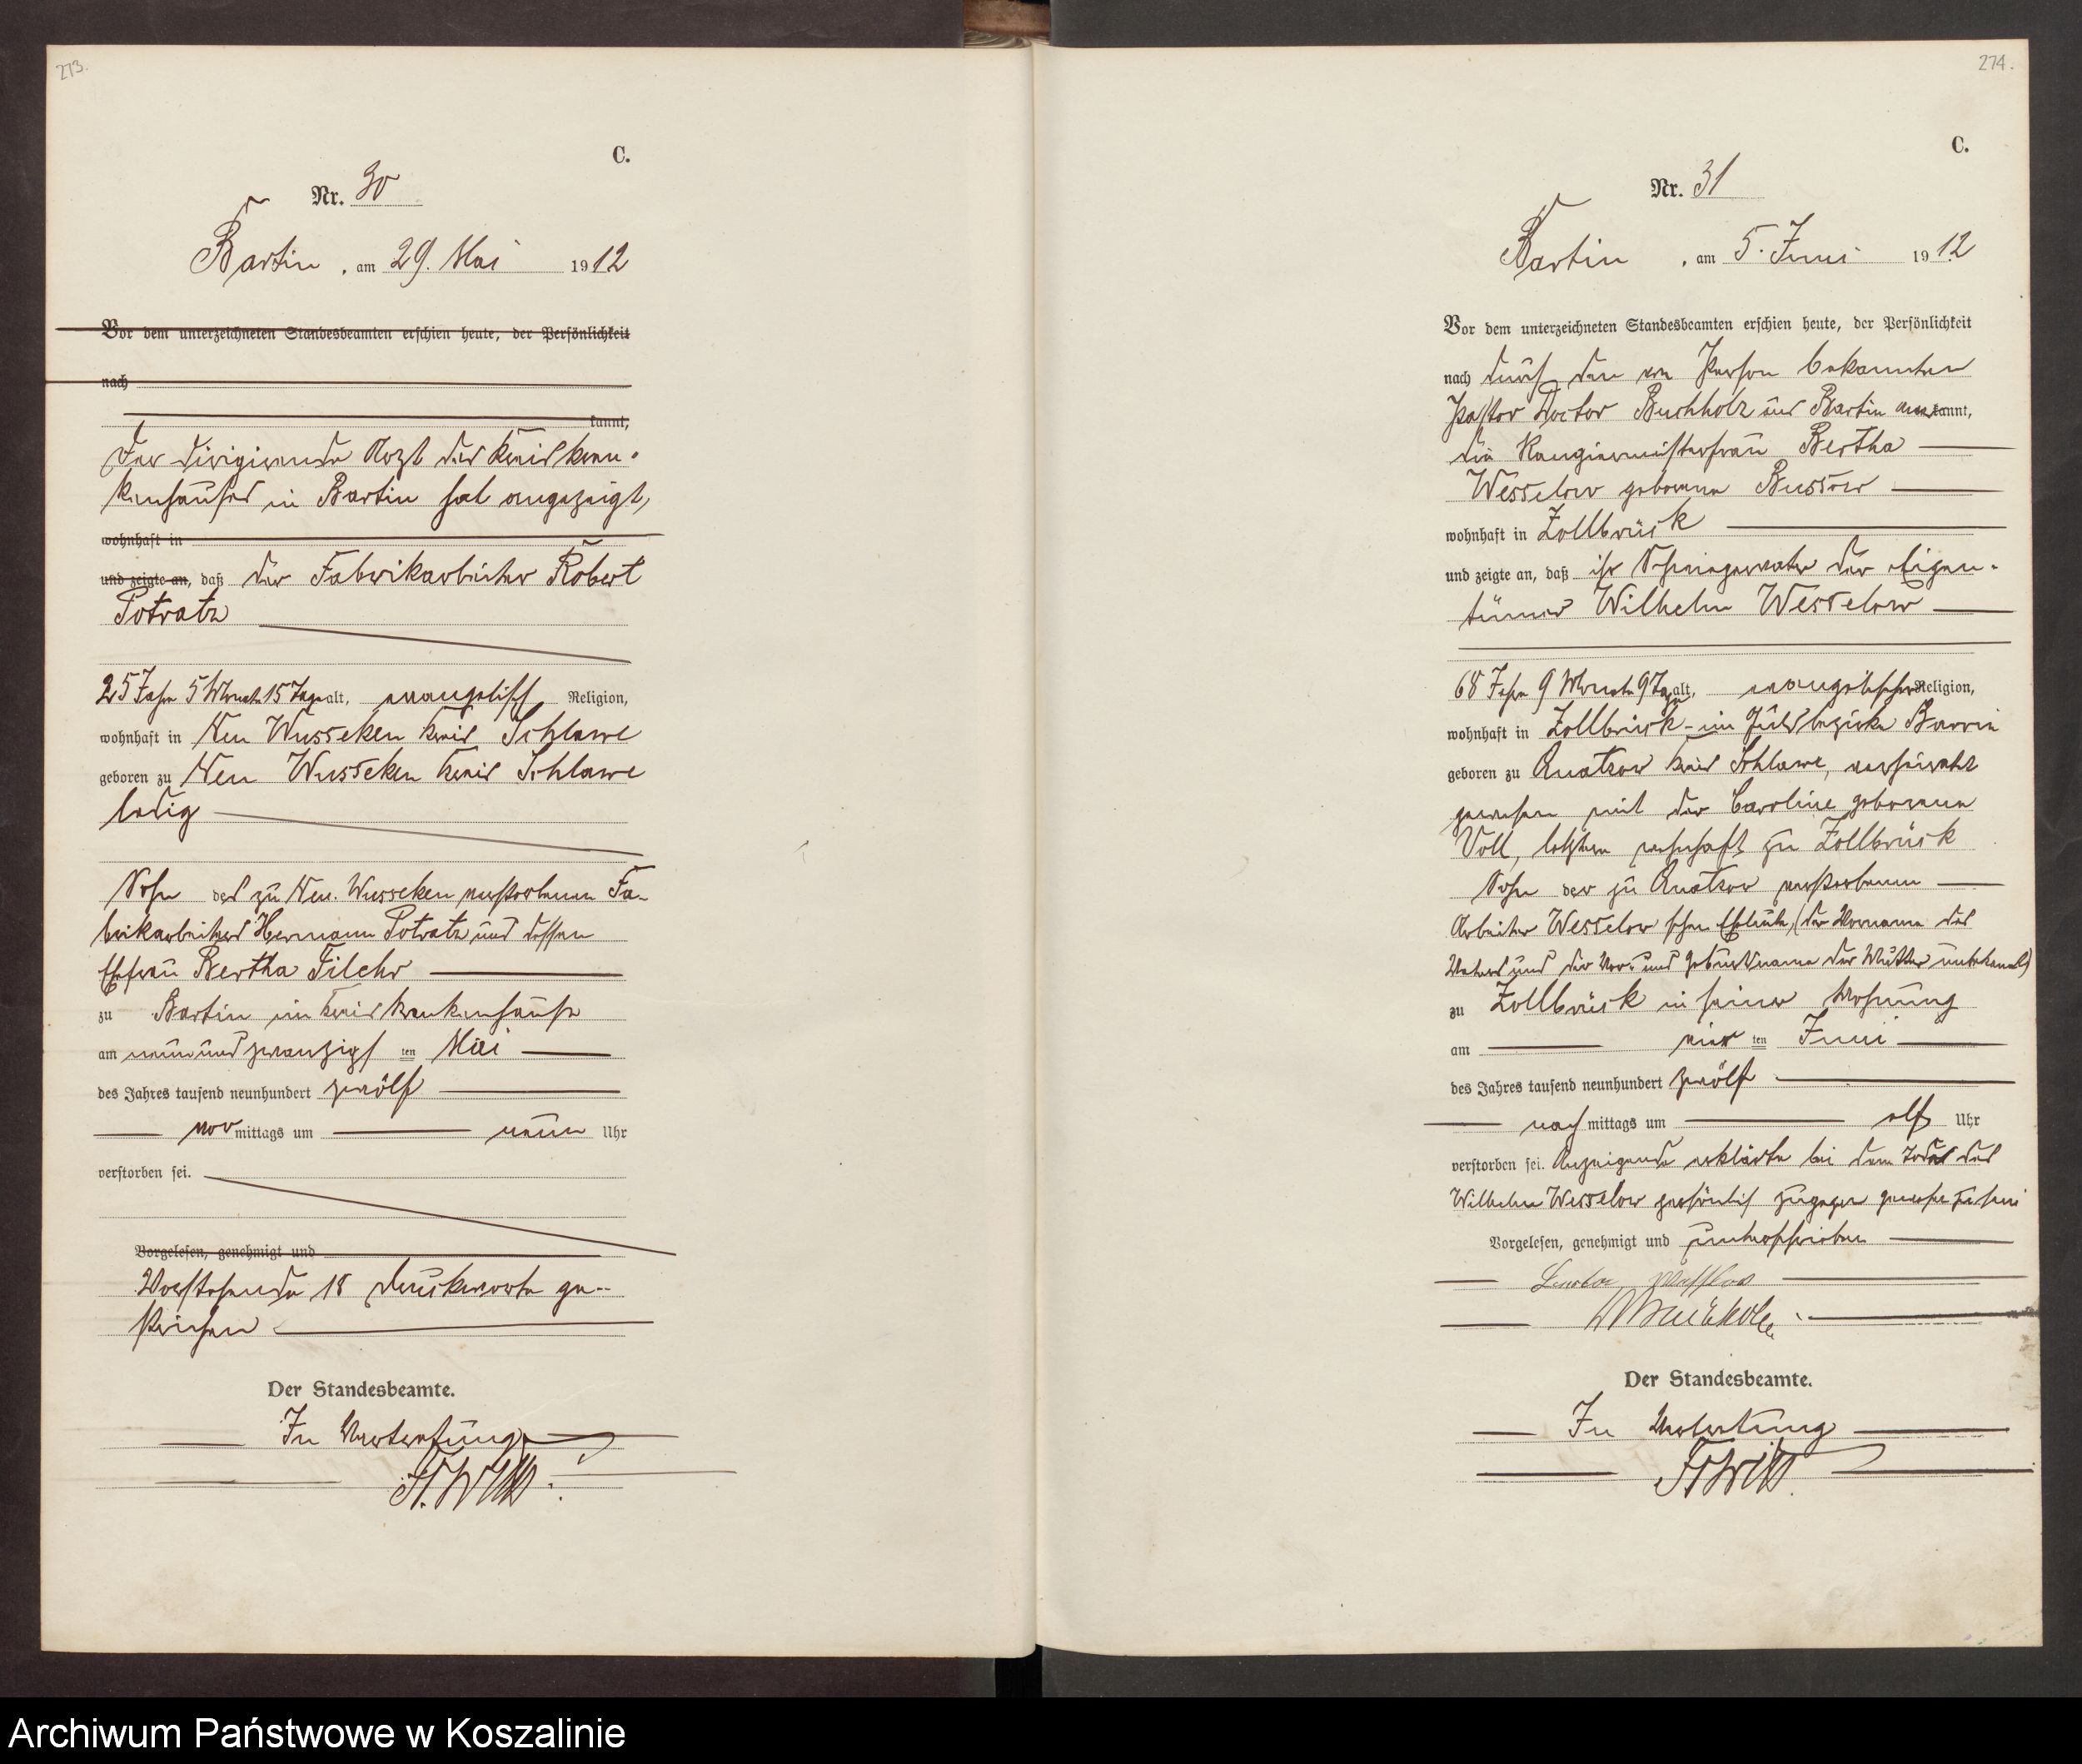 273.
C.
Nr. 30
Bartin, am 29. Mai 1912
Vor dem unterzeichneten Standesbeamten erschien heute, der Persönlichkeit
nach
kannt,
Der dirigirende Arzt des Kreiskran-
kenhauses in Bartin hat angezeigt,
wohnhaft in
und zeigte an, daß der Fabrikarbeiter Robert
Potratz
25 Jahre 5 Monate 15 Tage alt, evangelisch Religion,
wohnhaft in Neu Wusseken Kreis Schlawe
geboren zu Neu Wusseken Kreis Schlawe
ledig
Sohn des zu Neu. Wusseken verstorbenen Fa-
brikarbeiters Hermann Potratz und dessen
Ehefrau Bertha Filehr
zu Bartin im Kreiskrankenhause
am neunundzwanzigsten Mai
des Jahres tausend neunhundert zwölf
vormittags um neun Uhr
verstorben sei.
Vorgelesen, genehmigt und
Vorstehende 18 Druckworte ge-
strichen
Der Standesbeamte.
In Vertretung
274.
C.
Nr. 31
Bartin, am 5. Juni 1912
Vor dem unterzeichneten Standesbeamten erschien heute, der Persönlichkeit
nach durch den von Person bekannten
Pastor Doctor Buchholz aus Bartin anerkannt,
die Rangiermeisterfrau Bertha
Wesselow geborene Bussow
wohnhaft in Zollbrück
und zeigte an, daß ihr Schwiegervater der Eigen-
tümer Wilhelm Wesselow
68 Jahre 9 Monate 9 Tage alt, evangelischer Religion,
wohnhaft in Zollbrück im Gutsbezirke Barvin
geboren zu Quatzow Kreis Schlawe, verheirathet
gewesen mit der Caroline geborenen
Voll, letztere wohnhaft zu Zollbrück
Sohn der zu Quatzow verstorbenen
Arbeiter Wesselow schen Eheleute, (der Vorname des
Vaters und der Vor- und Geburtsname der Mutter unbekannt)
zu Zollbrück in seiner Wohnung
am vierten Juni
des Jahres tausend neunhundert zwölf
nachmittags um elf Uhr
verstorben sei. Anzeigende erklärte bei dem Tode des
Wilhelm Wesselow persönlich zugegen gewesen zu sein
Vorgelesen, genehmigt und unterschrieben
Der Standesbeamte.
In Vertretung
Archiwum Państwowe w Koszalinie